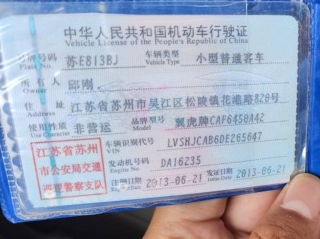 中华人民共和国机动车行驶证
Vehicle License of the People's Republic of China
号牌号码 苏E813BJ 车辆类型 小型普通客车
Plate No. Vehicle Type
所有人 邱刚
Owner
住址 江苏省苏州市吴江区松陵镇花港路828号
Address
使用性质 非营运 品牌型号 翼虎牌CAF6450A42
Use Character Model
江苏省苏州
市公安局交通
巡逻警察支队
车辆识别代号 LVSHJCAB6DE265647
VIN
发动机号码 DA16235
Engine No.
注册日期 2013-06-21 发证日期 2013-06-21
Register Date Issue Date